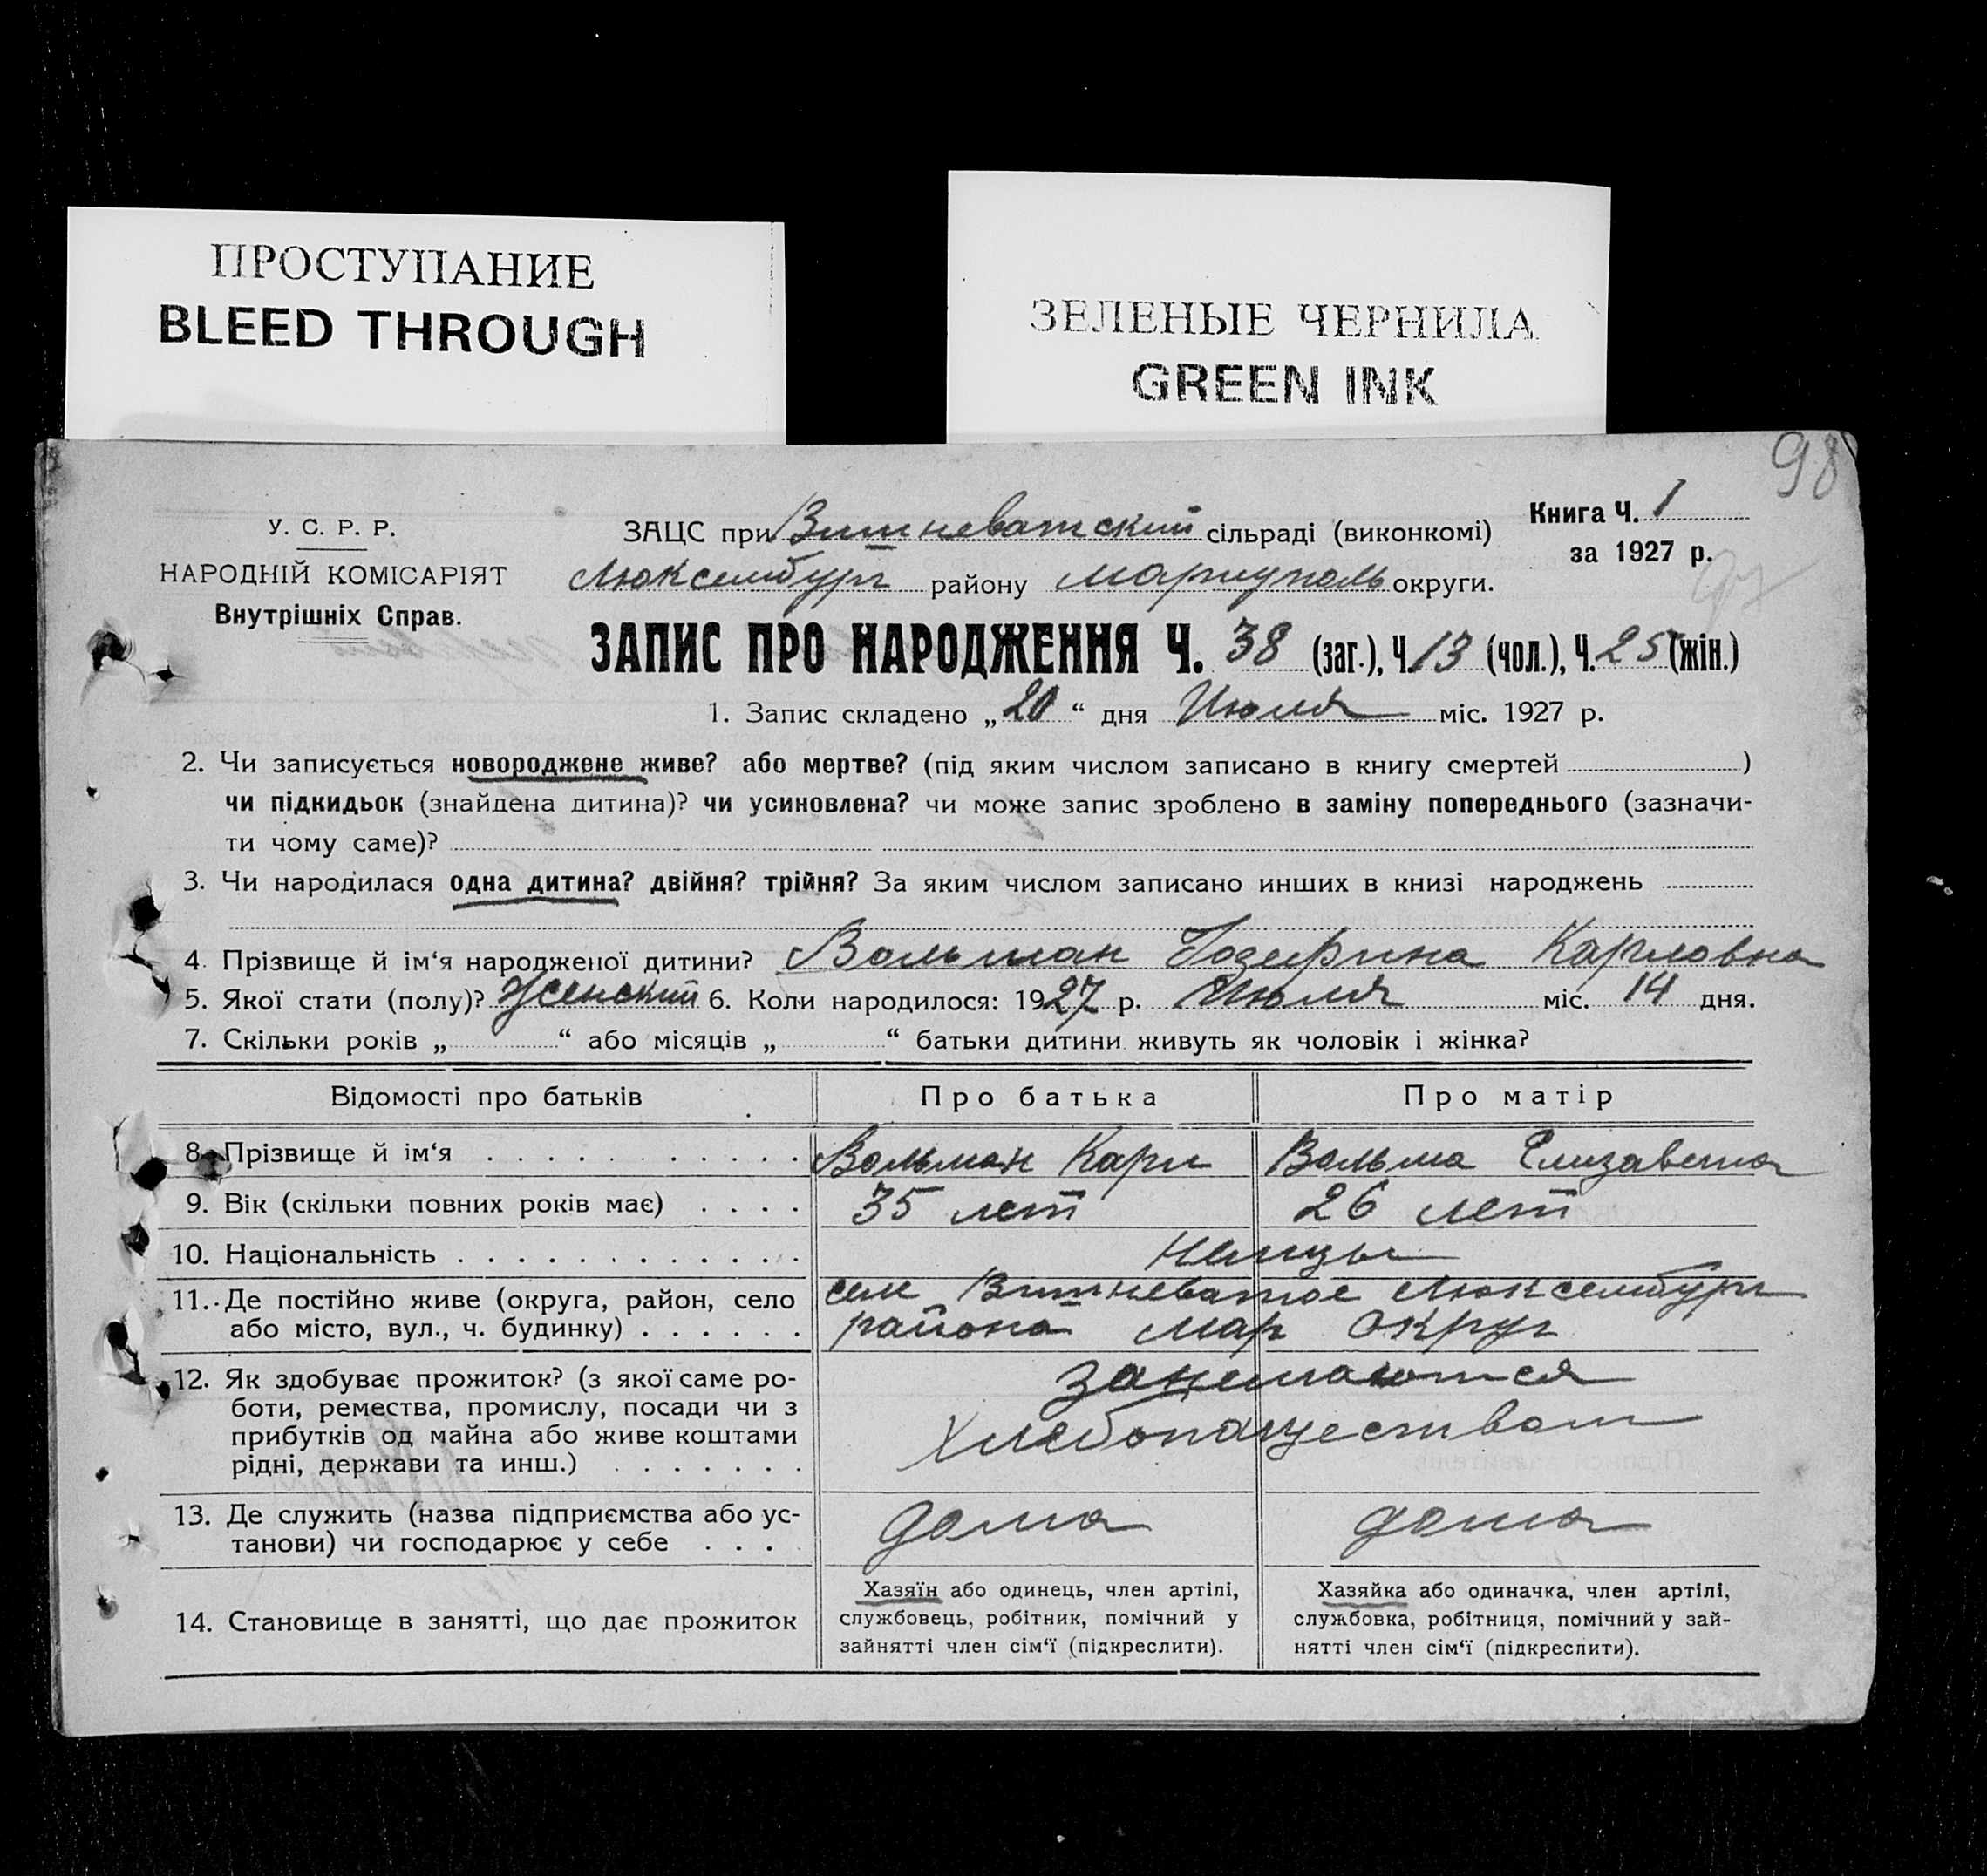 ПРОСТУПАНИЕ
BLEED THROUGH
ЗЕЛЕНЫЕ ЧЕРНИЛА
GREEN INK
98
У. С. Р. Р.
НАРОДНІЙ КОМІСАРІЯТ
Внутрішніх Справ.
ЗАЦС при Вишневатский сільраді (виконкомі)
Люксембург району Мариуполь округи.
Книга Ч. 1
за 1927 р.
97
ЗАПИС ПРО НАРОДЖЕННЯ Ч. 38 (заг.), Ч. 13 (чол.), Ч. 25 (жін.)
1. Запис складено „20“ дня Июля міс. 1927 р.
2. Чи записується новороджене живе? або мертве? (під яким числом записано в книгу смертей )
чи підкидьок (знайдена дитина)? чи усиновлена? чи може запис зроблено в заміну попереднього (зазначи-
ти чому саме)?
3. Чи народилася одна дитина? двійня? трійня? За яким числом записано инших в книзі народжень
4. Прізвище й ім‘я народженої дитини? Вольман Іозефина Карловна
5. Якої стати (полу)? Женский 6. Коли народилося: 1927 р. Июля міс. 14 дня.
7. Скільки років „ “ або місяців „ “ батьки дитини живуть як чоловік і жінка?
Відомості про батьків Про батька Про матір
8. Прізвище й ім‘я Вольман Карл Вольма Елизавета
9. Вік (скільки повних років має) 35 лет 26 лет
10. Національність Немцы
11. Де постійно живе (округа, район, село
або місто, вул., ч. будинку)
сел Вишневатое Люксембург
района Мар Округ
12. Як здобуває прожиток? (з якої саме ро-
боти, ремества, промислу, посади чи з
прибутків од майна або живе коштами
рідні, держави та инш.)
занимаются
Хлебопашеством
13. Де служить (назва підприємства або ус-
танови) чи господарює у себе
дома дома
14. Становище в занятті, що дає прожиток
Хазяїн або одинець, член артілі,
службовець, робітник, помічний у
зайнятті член сім‘ї (підкреслити).
Хазяйка або одиначка, член артілі,
службовка, робітниця, помічний у зай-
нятті член сім‘ї (підкреслити).